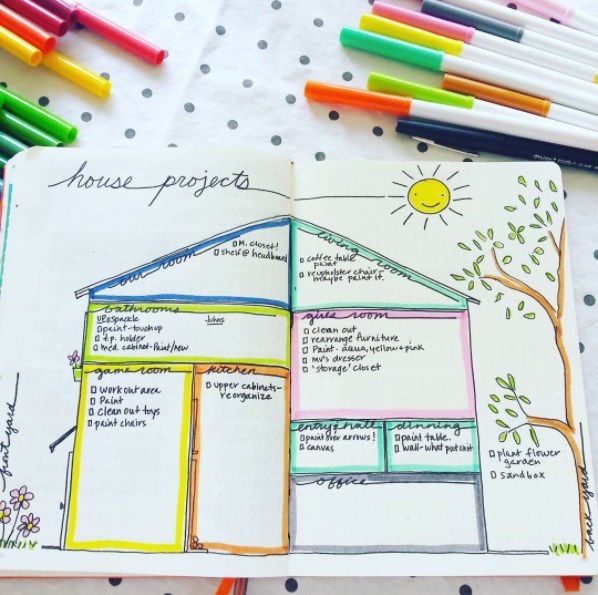 house projects
our room
M. closet!
shelf @ headboard
living room
coffee table
paint
reupholster chair -
maybe paint it.
bathrooms
spackle
paint-touchup
t.p. holder
med. cabinet-Paint/new
girls room
clean out
rearrange furniture
Paint - aqua, yellow + pink
mv's dresser
'storage' closet
game room
work out area
Paint
clean out toys
paint chairs
kitchen
upper cabinets-
reorganize
entry + hall
paint over arrows!
canvas
dinning
paint table.
wall-what put on it
office
front yard
plant flower
garden
sandbox
back yard